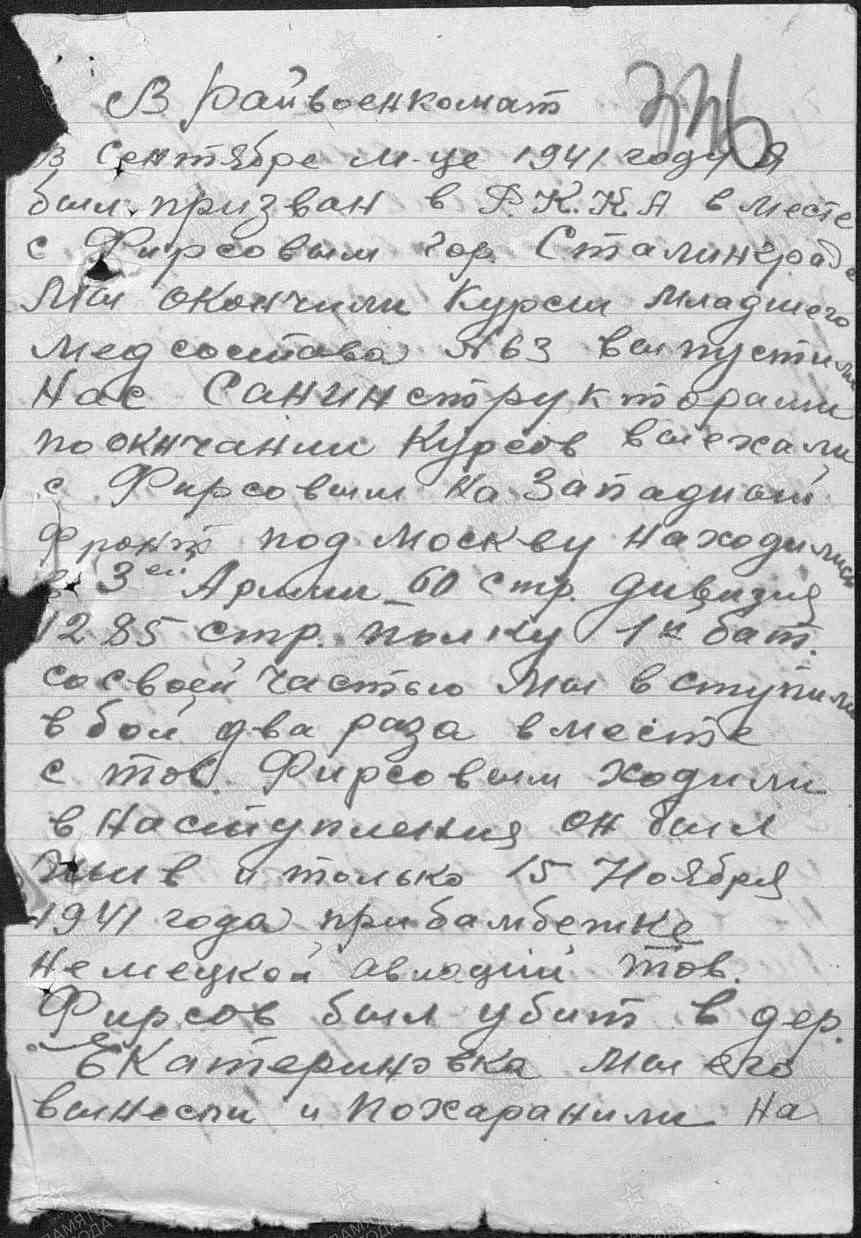 336
В райвоенкомат
в Сентябре м-це 1941 году я
был призван в Р.К.К.А вместе
с Фирсовым гор. Сталинграде
Мы окончили Курсы младшего
медсостава №63 выпустили
нас Санинструкторами
по окнчании Курсов выехали
с Фирсовым на Западный
фронт под москву находились
в 3ей Армии 60 стр. дивизия
1285 стр. полку 1й бат.
со своей частью мы вступили
в бой два раза вместе
с тов. Фирсовым ходили
в наступления он был
жыв и только 15 Ноября
1941 года при бамбежке
немецкой авиации тов.
Фирсов был убит в дер.
Екатериновка мы его
вынесли и похаранили на